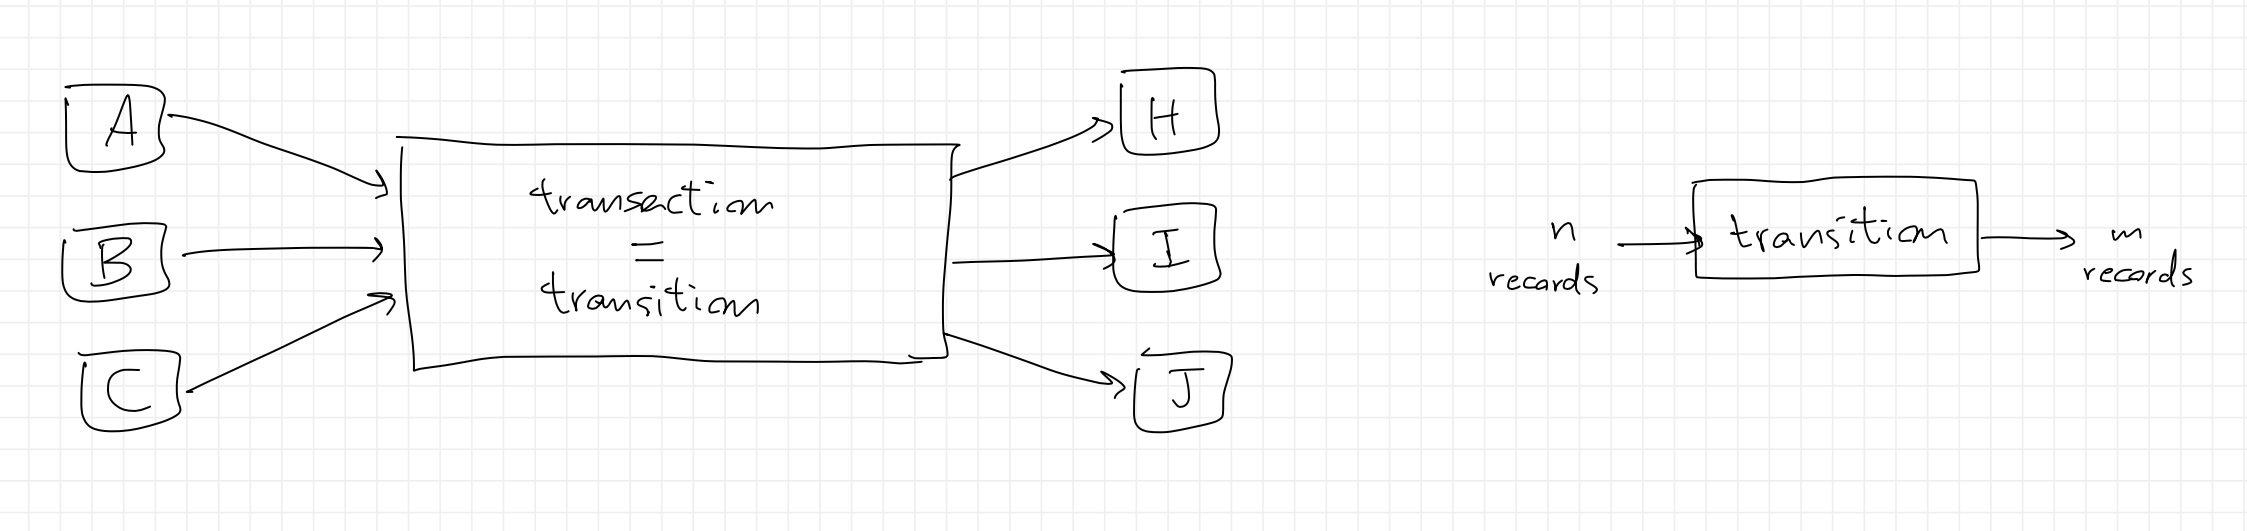 A
B
C
transaction
=
transition
H
I
J
n
records
transition
m
records